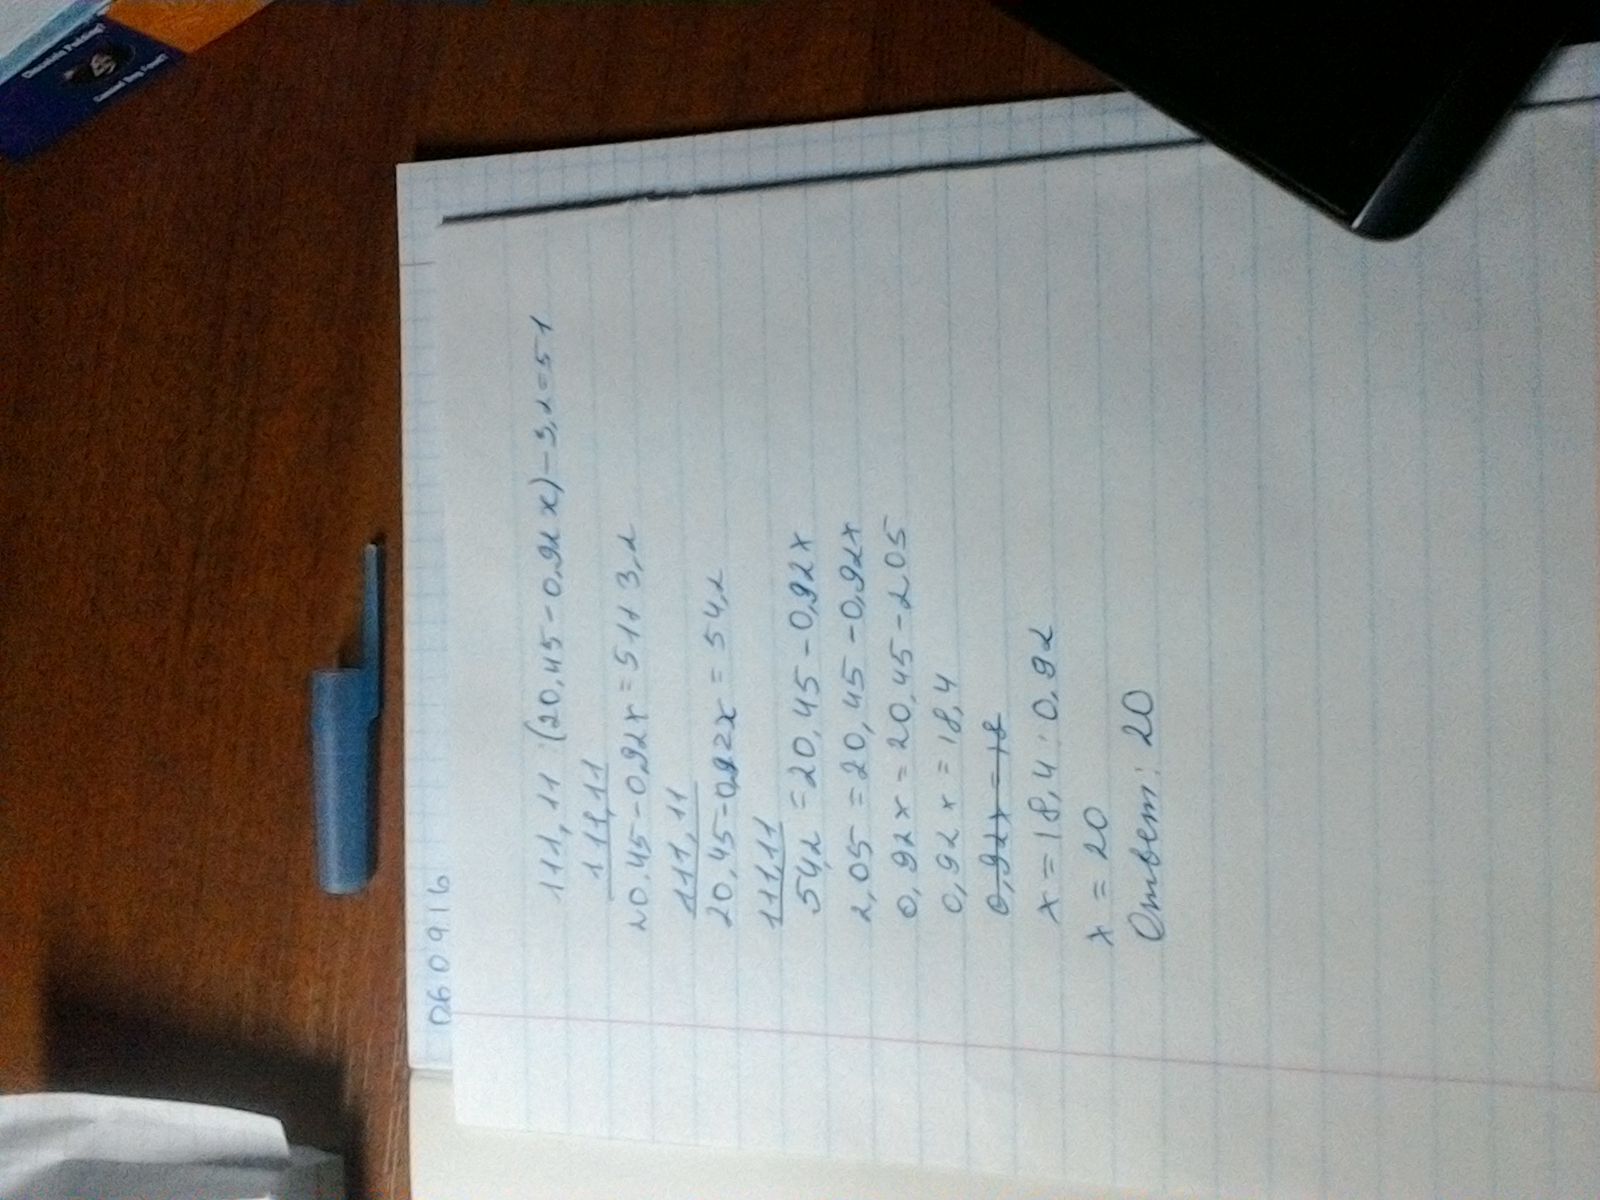 060916
111,11 : (20,45-0,92x)-3,2=51
111,11
20,45-0,92x = 51+3,2
111,11
20,45-0,92x = 54,2
111,11
54,2 = 20,45-0,92x
2,05 = 20,45-0,92x
0,92x = 20,45-2,05
0,92x = 18,4
0,92x = 18
x = 18,4 : 0,92
x = 20
Ответ: 20